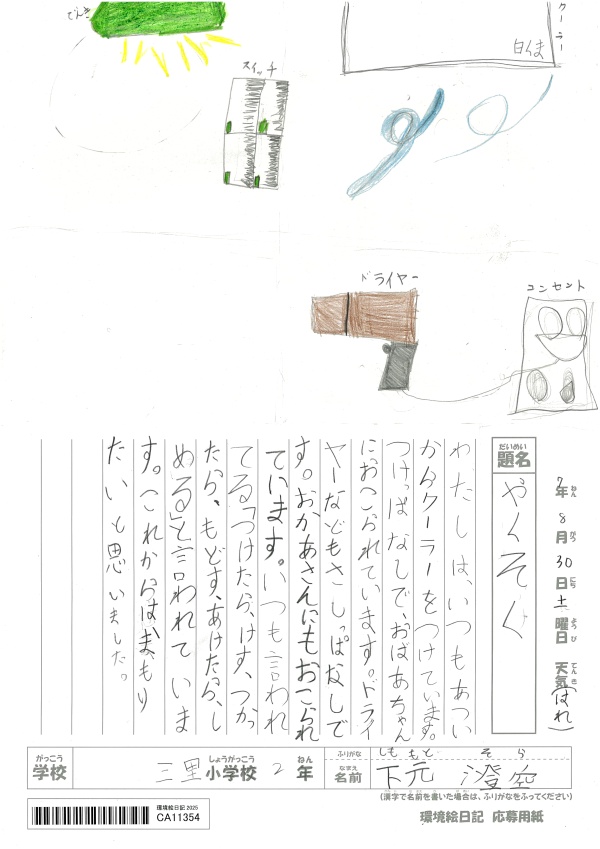 でんき
スイッチ
クーラー
白くま
ドライヤー
コンセント
7年 8月 30日 土曜日 天気(はれ)
ねん がつ にち ようび てんき
だいめい
題名
やくそく
わたしは、いつもあつい
からクーラーをつけています。
つけっぱなしで、おばあちゃん
におこられています。ドライ
ヤーなどもさしっぱなしで
す。おかあさんにもおこられ
ています。いつも言われ
てる「つけたら、けす、つかっ
たら、もどす、あけたら、し
める」と言われていま
す。これからは、まもり
たいと思いました。
がっこう しょうがっこう ねん
学校 三里小学校 2年
ふりがな しももと そら
なまえ
名前 下元 澄空
(漢字で名前を書いた場合は、ふりがなをふってください)
環境絵日記 2025
CA11354
環境絵日記 応募用紙